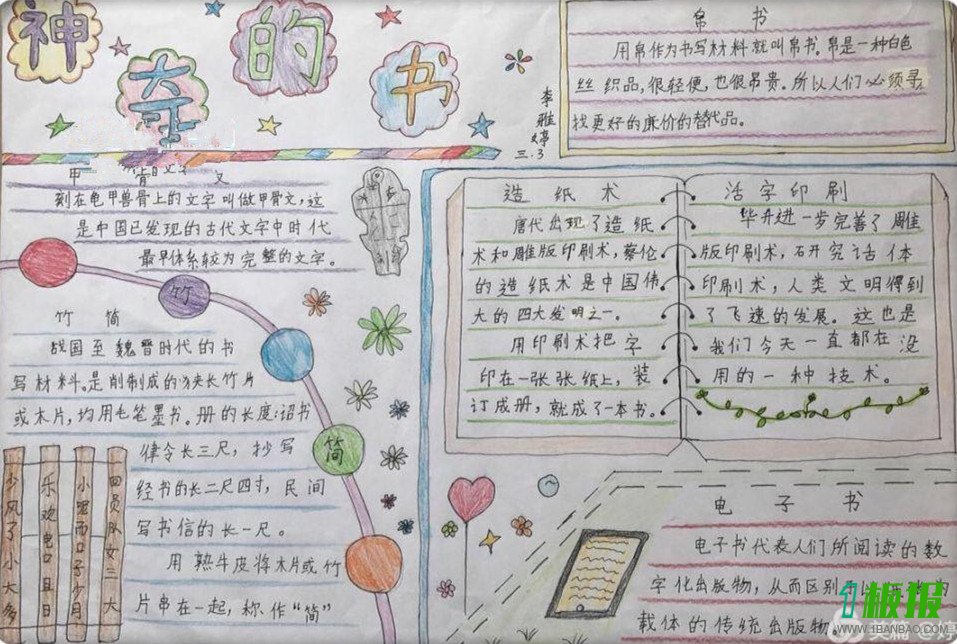 神奇的书
李雅婷
三.3
帛书
用帛作为书写材料就叫帛书。帛是一种白色
丝织品，很轻便，也很吊贵。所以人们必须寻
找更好的廉价的替代品。
甲骨文
刻在龟甲兽骨上的文字叫做甲骨文，这
是中国已发现的古代文字中时代
最早体系较为完整的文字。
竹
竹简
战国至魏晋时代的书
写材料。是削制成的狭长竹片
或木片，均用毛笔墨书。册的长度：诏书
律令长三尺，抄写
经书的长二尺四寸，民间
写书信的长一尺。
用熟牛皮将木片或竹
片串在一起，称作“简”
简
造纸术
唐代出现了造纸
术和雕版印刷术，蔡伦
的造纸术是中国伟
大的四大发明之一。
用印刷术把字
印在一张张纸上，装
订成册，就成了一本书。
活字印刷
毕升进一步完善了雕
版印刷术，研究活体
印刷术，人类文明得到
了飞速的发展。这也是
我们今天一直都在没
用的一种技术。
电子书
电子书代表人们所阅读的数
字化出版物，从而区别
载体的传统出版物
1板报
WWW.1BANBAO.COM